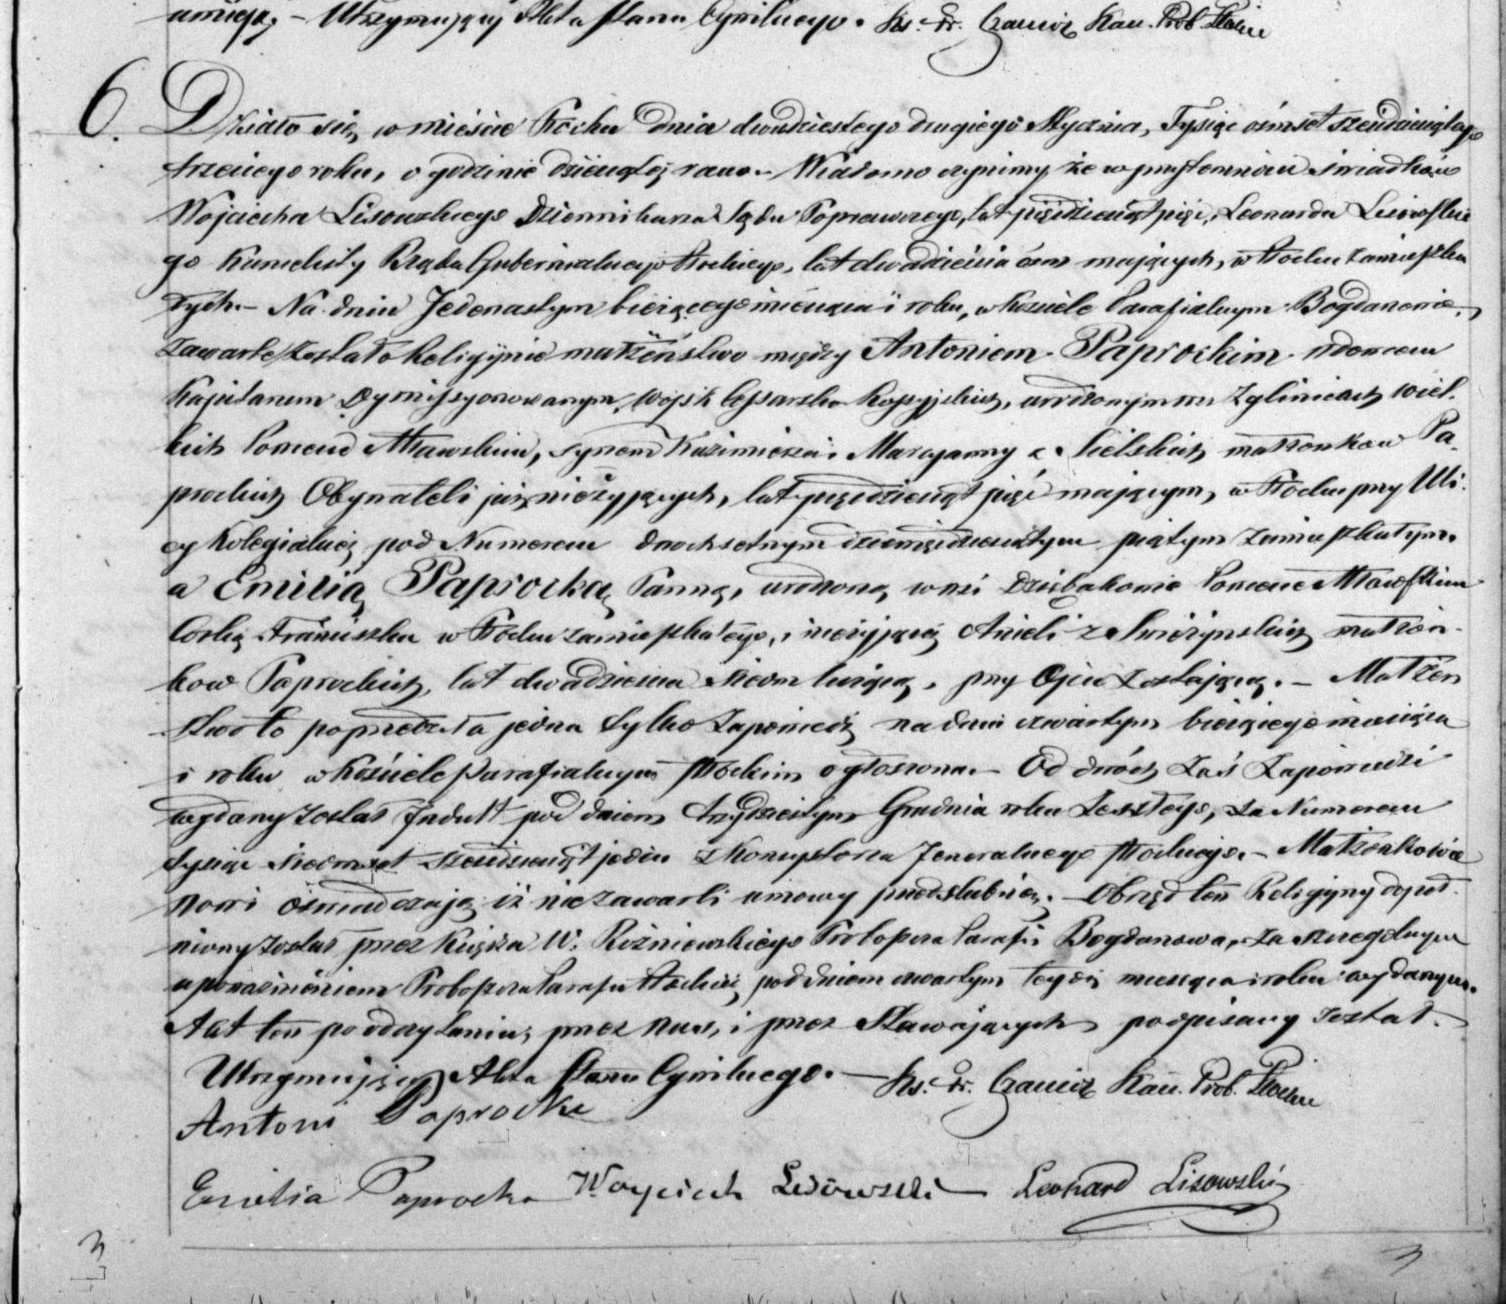 umieją. – Utrzymujący Akta Stanu Cywilnego. Ks. Fr. Czamiż Kan. Prob. Płocki
6. Działo się, w mieście Płocku dnia dwudziestego drugiego Stycznia, Tysiąc ośmset sześćdziesiątego
trzeciego roku, o godzinie dziewiątej rano. – Wiadomo czynimy że w przytomności świadków
Wojciecha Lisowskiego Dziennikarza Sądu Poprawczego, lat pięćdziesiąt pięć, Leonarda Lisowskie
go Kancelisty Rządu Gubernialnego Płockiego, lat dwadzieścia ośm mających, w Płocku zamieszka
łych. – Na dniu Jedenastym bieżącego miesiąca i roku, w kościele Parafialnym Bogdanowie,
zawarte zostało Religijnie małżeństwo między Antonim Paprockim wdowcem
Kapitanem Dymissyonowanym, Wojsk Cesarsko Rossyjskich, urodzonym w Zglinicach Wiel-
kich Powiecie Mławskim, synem Kazimierza i Maryanny z Sielskich małżonków Pa
prockich Obywateli już nieżyjących, lat pięćdziesiąt pięć mającym, w Płocku przy Uli-
cy Kolegialnej pod Numerem dwochsetnym dziewięćdziesiątym piątym zamieszkałym.
a Emilią Paprocką Panną, urodzoną w wsi Dzibakowie Powiecie Mławskim
Córką Franciszka w Płocku zamieszkałego, i nieżyjącej Anieli z Świeżyńskich małżon-
kow Paprockich, lat dwadzieścia siedm liczącą, przy Ojcu zostającą. – Małżeń
stwo to poprzedziła jedna tylko Zapowiedź na dniu czwartym bieżącego miesiąca
i roku w Kościele Parafialnym Płockim ogłoszona. – Od dwóch zaś Zapowiedzi
wydany został Indult pod dniem trzydziestym Grudnia roku zeszłego, za Numerem
tysiąc siedmset sześćdziesiąt jeden z Konsystorza Jeneralnego Płockiego. – Małżonkowie
nowi oświadczają iż nie zawarli umowy przedślubnej. – Obrząd ten Religijny dopeł-
niony został przez Księdza W. Rożniewskiego Proboszcza Parafii Bogdanowa, za szczegolnym
upoważnieniem Proboszcza Parafii Płockiej, pod dniem czwartym tegoż miesiąca i roku wydanym.
Akt ten po odczytaniu, przez nas, i przez Stawających podpisany został.
Utrzymujący Akta Stanu Cywilnego. – Ks. Fr. Czamiż Kan. Prob. Płocki
Antoni Paprocki
Emilia Paprocka Woyciech Lisowski Leonard Lisowski
3 3